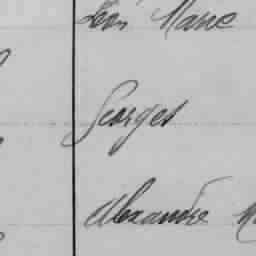 Léon Marie
Georges
Alexandre